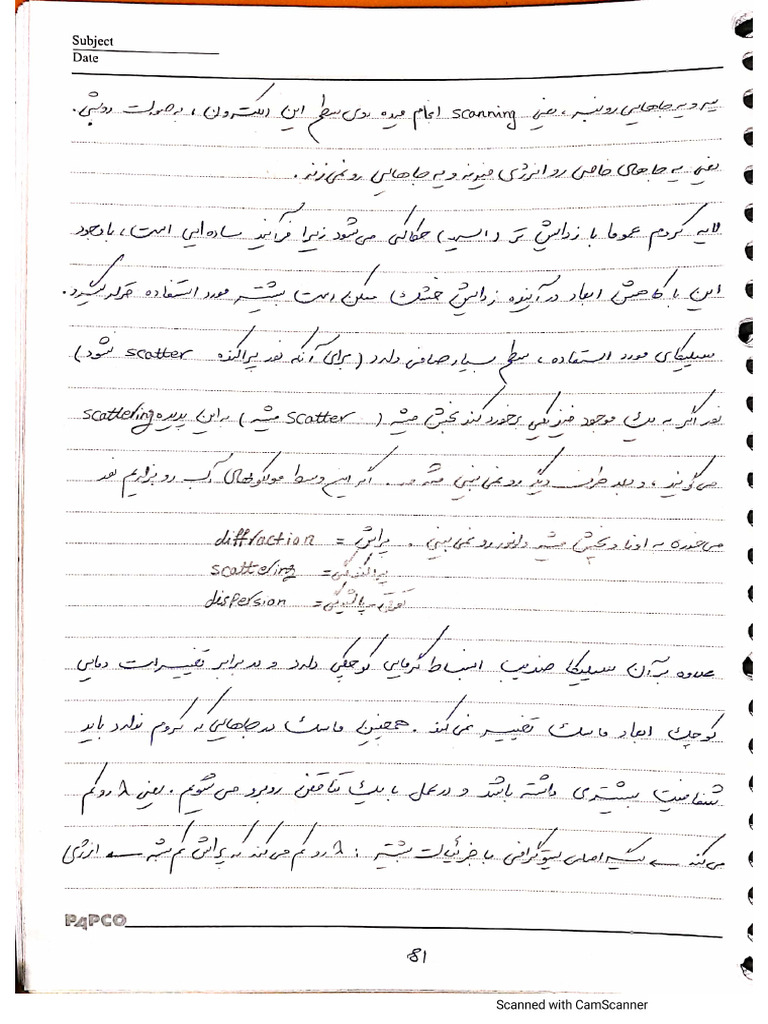 Subject
Date
یه و یه جاهایی رو نبره، یعنی scanning انجام میده روی سطح این الکترون، به صورت روبشی.
یعنی یه جاهای خاصی رو انرژی میزنه و یه جاهایی رو نمی‌زنه.
لایه کروم عموما با زدایش تر (اسید) حکاکی می‌شود زیرا فرآیند ساده‌ایی است، با وجود
این با کاهش ابعاد در آینده زدایش خشک ممکن است بیشتر مورد استفاده قرار بگیرد.
سیلیکای مورد استفاده، سطح بسیار صافی دارد (برای آنکه نور پراکنده scatter نشود)
نور اگر به یک موجود فیزیکی برخورد کند پخش میشه (scatter میشه) به این پدیده scattering
می‌گویند، و بعد طرف دیگر رو نمی‌بینی. اگه این وسط مولکولهای آب رو بزاریم نور
می‌خوره به اونا و پخش میشه و اونور رو نمی‌بینی. پراش = diffraction
پراکندگی = scattering
تفرق، پاشیدگی = dispersion
علاوه بر آن سیلیکا ضریب انبساط گرمایی کوچکی دارد و در برابر تغییرات دمایی
کوچک ابعاد ماسک تغییر نمی‌کند. همچنین ماسک در جاهایی که کروم ندارد باید
شفافیت بیشتری داشته باشد و در عمل با یک تناقض روبرو می‌شویم. یعنی λ رو کم
می‌کند ← مسیر اصلی لیتوگرافی با جزئیات بیشتر: λ رو کم می‌کند که پراش کم شه ← انرژی
PAPCO
81
Scanned with CamScanner